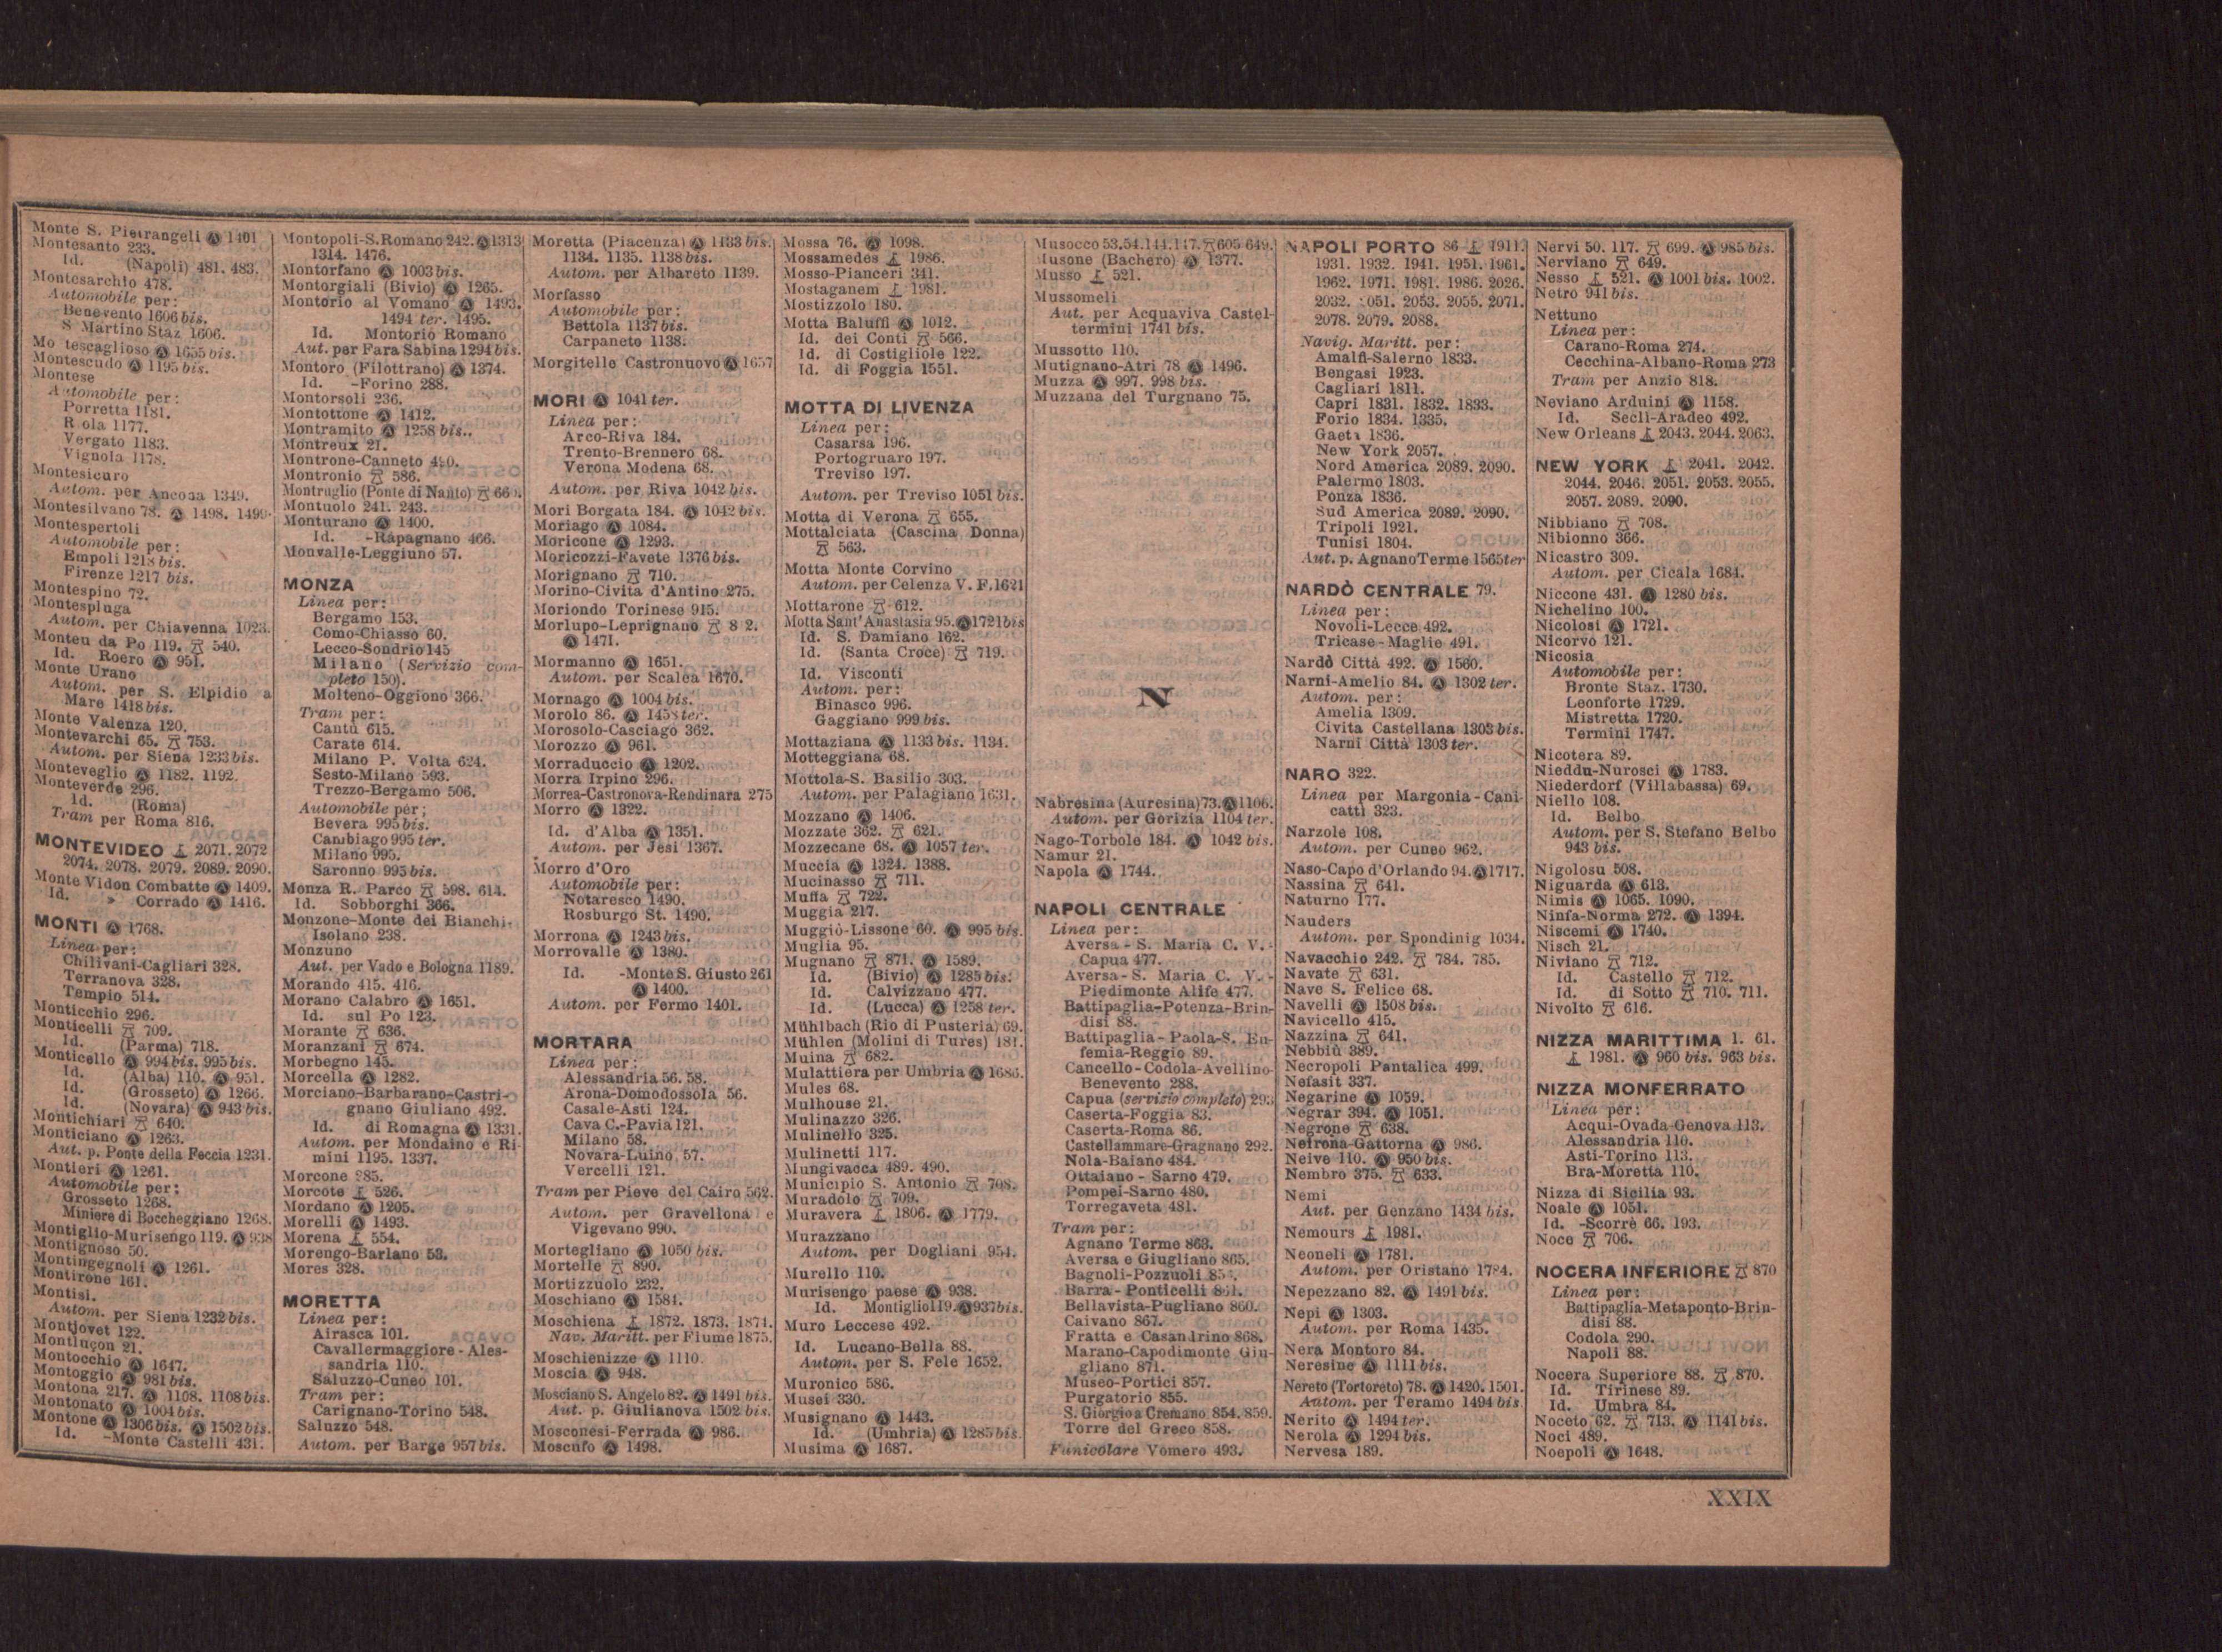 Monte S. Pietrangeli Ⓐ 1401
Montesanto 233.
Id. (Napoli) 481. 483.
Montesarchio 478.
Automobile per:
Benevento 1606 bis.
S Martino Staz 1606.
Mo tescaglioso Ⓐ 1655 bis.
Montescudo Ⓐ 1195 bis.
Montese
Automobile per:
Porretta 1181.
R ola 1177.
Vergato 1183.
Vignola 1178.
Montesicuro
Autom. per Ancona 1349.
Montesilvano 78. Ⓐ 1498. 1499.
Montespertoli
Automobile per:
Empoli 1218 bis.
Firenze 1217 bis.
Montespino 72.
Montespluga
Autom. per Chiavenna 1023.
Monteu da Po 119. 540.
Id. Roero Ⓐ 951.
Monte Urano
Autom. per S. Elpidio a
Mare 1418 bis.
Monte Valenza 120.
Montevarchi 65. 753.
Autom. per Siena 1233 bis.
Monteveglio Ⓐ 1182. 1192.
Monteverde 296.
Id. (Roma)
Tram per Roma 816.
MONTEVIDEO 2071. 2072
2074. 2078. 2079. 2089. 2090.
Monte Vidon Combatte Ⓐ 1409.
Id. » Corrado Ⓐ 1416.
MONTI Ⓐ 1768.
Linea per:
Chilivani-Cagliari 328.
Terranova 328.
Tempio 514.
Monticchio 296.
Monticelli 709.
Id. (Parma) 718.
Monticello Ⓐ 994 bis. 995 bis.
Id. (Alba) 110. Ⓐ 951.
Id. (Grosseto) Ⓐ 1266.
Id. (Novara) Ⓐ 943 bis.
Montichiari 640.
Monticiano Ⓐ 1263.
Aut. p. Ponte della Feccia 1231.
Montieri Ⓐ 1261.
Automobile per:
Grosseto 1268.
Miniere di Boccheggiano 1268.
Montiglio-Murisengo 119. Ⓐ 938
Montignoso 50.
Montingegnoli Ⓐ 1261.
Montirone 161.
Montisi.
Autom. per Siena 1232 bis.
Montjovet 122.
Montluçon 21.
Montocchio Ⓐ 1647.
Montoggio Ⓐ 981 bis.
Montona 217. Ⓐ 1108. 1108 bis.
Montonato Ⓐ 1004 bis.
Montone Ⓐ 1306 bis. Ⓐ 1502 bis.
Id. -Monte Castelli 431.
Montopoli-S.Romano 242. Ⓐ 1313
1314. 1476.
Montorfano Ⓐ 1003 bis.
Montorgiali (Bivio) Ⓐ 1265.
Montorio al Vomano Ⓐ 1493.
1494 ter. 1495.
Id. Montorio Romano
Aut. per Fara Sabina 1294 bis.
Montoro (Filottrano) Ⓐ 1374.
Id. -Forino 288.
Montorsoli 236.
Montottone Ⓐ 1412.
Montramito Ⓐ 1258 bis..
Montreux 21.
Montrone-Canneto 490.
Montronio 586.
Montruglio (Ponte di Nanto)
Montuolo 241. 243.
Monturano Ⓐ 1400.
Id. -Rapagnano 466.
Monvalle-Leggiuno 57.
MONZA
Linea per:
Bergamo 153.
Como-Chiasso 60.
Lecco-Sondrio 145
Milano (Servizio com-
pleto 150).
Molteno-Oggiono 366.
Tram per:
Cantù 615.
Carate 614.
Milano P. Volta 624.
Sesto-Milano 593.
Trezzo-Bergamo 506.
Automobile per;
Bevera 995 bis.
Cambiago 995 ter.
Milano 995.
Saronno 995 bis.
Monza R. Parco 598. 614.
Id. Sobborghi 366.
Monzone-Monte dei Bianchi-
Isolano 238.
Monzuno
Aut. per Vado e Bologna 1189.
Morando 415. 416.
Morano Calabro Ⓐ 1651.
Id. sul Po 123.
Morante 636.
Moranzani 674.
Morbegno 145.
Morcella Ⓐ 1282.
Morciano-Barbarano-Castri-
gnano Giuliano 492.
Id. di Romagna Ⓐ 1331.
Autom. per Mondaino e Ri-
mini 1195. 1337.
Morcone 285.
Morcote 526.
Mordano Ⓐ 1205.
Morelli Ⓐ 1493.
Morena 554.
Morengo-Bariano 53.
Mores 328.
MORETTA
Linea per:
Airasca 101.
Cavallermaggiore - Ales-
sandria 110.
Saluzzo-Cuneo 101.
Tram per:
Carignano-Torino 548.
Saluzzo 548.
Autom. per Barge 957 bis.
Moretta (Piacenza) Ⓐ 1133 bis.
1134. 1135. 1138 bis.
Autom. per Albareto 1139.
Morfasso
Automobile per:
Bettola 1137 bis.
Carpaneto 1138.
Morgitelle Castronuovo Ⓐ 1657
MORI Ⓐ 1041 ter.
Linea per:
Arco-Riva 184.
Trento-Brennero 68.
Verona Modena 68.
Autom. per Riva 1042 bis.
Mori Borgata 184. Ⓐ 1042 bis.
Moriago Ⓐ 1084.
Moricone Ⓐ 1293.
Moricozzi-Favete 1376 bis.
Morignano 710.
Morino-Civita d'Antino 275.
Moriondo Torinese 915.
Morlupo-Leprignano 8 2.
Ⓐ 1471.
Mormanno Ⓐ 1651.
Autom. per Scalea 1670.
Mornago Ⓐ 1004 bis.
Morolo 86. Ⓐ 1458 ter.
Morosolo-Casciago 362.
Morozzo Ⓐ 961.
Morraduccio Ⓐ 1202.
Morra Irpino 296.
Morrea-Castronova-Rendinara 275
Morro Ⓐ 1322.
Id. d'Alba Ⓐ 1351.
Autom. per Jesi 1367.
Morro d'Oro
Automobile per:
Notaresco 1490.
Rosburgo St. 1490.
Morrona Ⓐ 1243 bis.
Morrovalle Ⓐ 1380.
Id. -Monte S. Giusto 261
Ⓐ 1400.
Autom. per Fermo 1401.
MORTARA
Linea per:
Alessandria 56. 58.
Arona-Domodossola 56.
Casale-Asti 124.
Cava C.-Pavia 121.
Milano 58.
Novara-Luino. 57.
Vercelli 121.
Tram per Pieve del Cairo 562.
Autom. per Gravellona e
Vigevano 990.
Mortegliano Ⓐ 1050 bis.
Mortelle 890.
Mortizzuolo 232.
Moschiano Ⓐ 1584.
Moschiena 1872. 1873. 1874.
Nav. Maritt. per Fiume 1875.
Moschienizze Ⓐ 1110.
Moscia Ⓐ 948.
Mosciano S. Angelo 82. Ⓐ 1491 bis.
Aut. p. Giulianova 1502 bis.
Mosconesi-Ferrada Ⓐ 986.
Moscufo Ⓐ 1498.
Mossa 76. Ⓐ 1098.
Mossamedes 1986.
Mosso-Pianceri 341.
Mostaganem 1981.
Mostizzolo 180.
Motta Baluffi Ⓐ 1012.
Id. dei Conti 566.
Id. di Costigliole 122.
Id. di Foggia 1551.
MOTTA DI LIVENZA
Linea per:
Casarsa 196.
Portogruaro 197.
Treviso 197.
Autom. per Treviso 1051 bis.
Motta di Verona 655.
Mottalciata (Cascina Donna)
563.
Motta Monte Corvino
Autom. per Celenza V. F. 1621
Mottarone 612.
Motta Sant'Anastasia 95. Ⓐ 1721 bis
Id. S. Damiano 162.
Id. (Santa Croce) 719.
Id. Visconti
Autom. per:
Binasco 996.
Gaggiano 999 bis.
Mottaziana Ⓐ 1133 bis. 1134.
Motteggiana 68.
Mottola-S. Basilio 303.
Autom. per Palagiano 1631.
Mozzano Ⓐ 1406.
Mozzate 362. 621.
Mozzecane 68. Ⓐ 1057 ter.
Muccia Ⓐ 1324. 1388.
Mucinasso 711.
Muffa 722.
Muggia 217.
Muggiò-Lissone 60. Ⓐ 995 bis.
Muglia 95.
Mugnano 871. Ⓐ 1589.
Id. (Bivio) Ⓐ 1285 bis.
Id. Calvizzano 477.
Id. (Lucca) Ⓐ 1258 ter.
Mühlbach (Rio di Pusteria) 69.
Mühlen (Molini di Tures) 181.
Muina 682.
Mulattiera per Umbria Ⓐ 1686.
Mules 68.
Mulhouse 21.
Mulinazzo 326.
Mulinello 325.
Mulinetti 117.
Mungivacca 489. 490.
Municipio S. Antonio 708.
Muradolo 709.
Muravera 1806. Ⓐ 1779.
Murazzano
Autom. per Dogliani 954.
Murello 110.
Murisengo paese Ⓐ 938.
Id. Montiglio 119. Ⓐ 937 bis.
Muro Leccese 492.
Id. Lucano-Bella 88.
Autom. per S. Fele 1652.
Muronico 586.
Musei 330.
Musignano Ⓐ 1443.
Id. (Umbria) Ⓐ 1285 bis.
Musima Ⓐ 1687.
Musocco 53. 54. 144. 147. 605 649.
Musone (Bachero) Ⓐ 1377.
Musso 521.
Mussomeli
Aut. per Acquaviva Castel-
termini 1741 bis.
Mussotto 110.
Mutignano-Atri 78 Ⓐ 1496.
Muzza Ⓐ 997. 998 bis.
Muzzana del Turgnano 75.
N
Nabresina (Auresina) 73. Ⓐ 1106.
Autom. per Gorizia 1104 ter.
Nago-Torbole 184. Ⓐ 1042 bis.
Namur 21.
Napola Ⓐ 1744.
NAPOLI CENTRALE
Linea per:
Aversa - S. Maria C. V.-
Capua 477.
Aversa - S. Maria C. V.-
Piedimonte Alife 477.
Battipaglia-Potenza-Brin-
disi 88.
Battipaglia - Paola-S. Eu-
femia-Reggio 89.
Cancello-Codola-Avellino-
Benevento 288.
Capua (servizio completo)
Caserta-Foggia 83.
Caserta-Roma 86.
Castellammare-Gragnano 292.
Nola-Baiano 484.
Ottaiano - Sarno 479.
Pompei-Sarno 480.
Torregaveta 481.
Tram per:
Agnano Terme 863.
Aversa e Giugliano 865.
Bagnoli-Pozzuoli
Barra - Ponticelli 861.
Bellavista-Pugliano 860.
Caivano 867.
Fratta e Casandrino 868.
Marano-Capodimonte Giu-
gliano 871.
Museo-Portici 857.
Purgatorio 855.
S. Giorgio a Cremano 854. 859.
Torre del Greco 858.
Funicolare Vomero 493.
NAPOLI PORTO 86 1911.
1931. 1932. 1941. 1951. 1961.
1962. 1971. 1981. 1986. 2026.
2032. 051. 2053. 2055. 2071.
2078. 2079. 2088.
Navig. Maritt. per:
Amalfi-Salerno 1833.
Bengasi 1923.
Cagliari 1811.
Capri 1831. 1832. 1833.
Forio 1834. 1335.
Gaeta 1836.
New York 2057.
Nord America 2089. 2090.
Palermo 1803.
Ponza 1836.
Sud America 2089. 2090.
Tripoli 1921.
Tunisi 1804.
Aut. p. Agnano Terme 1565 ter
NARDÒ CENTRALE 79.
Linea per:
Novoli-Lecce 492.
Tricase - Maglie 491.
Nardò Città 492. Ⓐ 1560.
Narni-Amelio 84. Ⓐ 1302 ter.
Autom. per:
Amelia 1309.
Civita Castellana 1303 bis.
Narni Città 1303 ter.
NARO 322.
Linea per Margonia - Cani-
catti 323.
Narzole 108.
Autom. per Cuneo 962.
Naso-Capo d'Orlando 94. Ⓐ 1717.
Nassina 641.
Naturno 177.
Nauders
Autom. per Spondinig 1034.
Navacchio 242. 784. 785.
Navate 631.
Nave S. Felice 68.
Navelli Ⓐ 1508 bis.
Navicello 415.
Nazzina 641.
Nebbiù 389.
Necropoli Pantalica 499.
Nefasit 337.
Negarine Ⓐ 1059.
Negrar 394. Ⓐ 1051.
Negrone 638.
Neirona-Gattorna Ⓐ 986.
Neive 110. Ⓐ 950 bis.
Nembro 375. 633.
Nemi
Aut. per Genzano 1434 bis.
Nemours 1981.
Neoneli Ⓐ 1781.
Autom. per Oristano 1784.
Nepezzano 82. Ⓐ 1491 bis.
Nepi Ⓐ 1303.
Autom. per Roma 1435.
Nera Montoro 84.
Neresine Ⓐ 1111 bis.
Nereto (Tortoreto) 78. Ⓐ 1420. 1501.
Autom. per Teramo 1494 bis
Nerito Ⓐ 1494 ter.
Nerola Ⓐ 1294 bis.
Nervesa 189.
Nervi 50. 117. 699. Ⓐ 985 bis.
Nerviano 649.
Nesso 521. Ⓐ 1001 bis. 1002.
Netro 941 bis.
Nettuno
Linea per:
Carano-Roma 274.
Cecchina-Albano-Roma 273
Tram per Anzio 818.
Neviano Arduini Ⓐ 1158.
Id. Secli-Aradeo 492.
New Orleans 2043. 2044. 2063.
NEW YORK 2041. 2042.
2044. 2046. 2051. 2053. 2055.
2057. 2089. 2090.
Nibbiano 708.
Nibionno 366.
Nicastro 309.
Autom. per Cicala 1684.
Niccone 431. Ⓐ 1280 bis.
Nichelino 100.
Nicolosi Ⓐ 1721.
Nicorvo 121.
Nicosia
Automobile per:
Bronte Staz. 1730.
Leonforte 1729.
Mistretta 1720.
Termini 1747.
Nicotera 89.
Nieddu-Nurosci Ⓐ 1783.
Niederdorf (Villabassa) 69.
Niello 108.
Id. Belbo
Autom. per S. Stefano Belbo
943 bis.
Nigolosu 508.
Niguarda Ⓐ 613.
Nimis Ⓐ 1065. 1090.
Ninfa-Norma 272. Ⓐ 1394.
Niscemi Ⓐ 1740.
Nisch 21.
Niviano 712.
Id. Castello 712.
Id. di Sotto 710. 711.
Nivolto 616.
NIZZA MARITTIMA 1. 61.
1981. Ⓐ 960 bis. 963 bis.
NIZZA MONFERRATO
Linea per:
Acqui-Ovada-Genova 113.
Alessandria 110.
Asti-Torino 113.
Bra-Moretta 110.
Nizza di Sicilia 93.
Noale Ⓐ 1051.
Id. -Scorrè 66. 193.
Noce 706.
NOCERA INFERIORE 870
Linea per:
Battipaglia-Metaponto-Brin-
disi 88.
Codola 290.
Napoli 88.
Nocera Superiore 88. 870.
Id. Tirinese 89.
Id. Umbra 84.
Noceto 62. 713. Ⓐ 1141 bis.
Noci 489.
Noepoli Ⓐ 1648.
XXIX